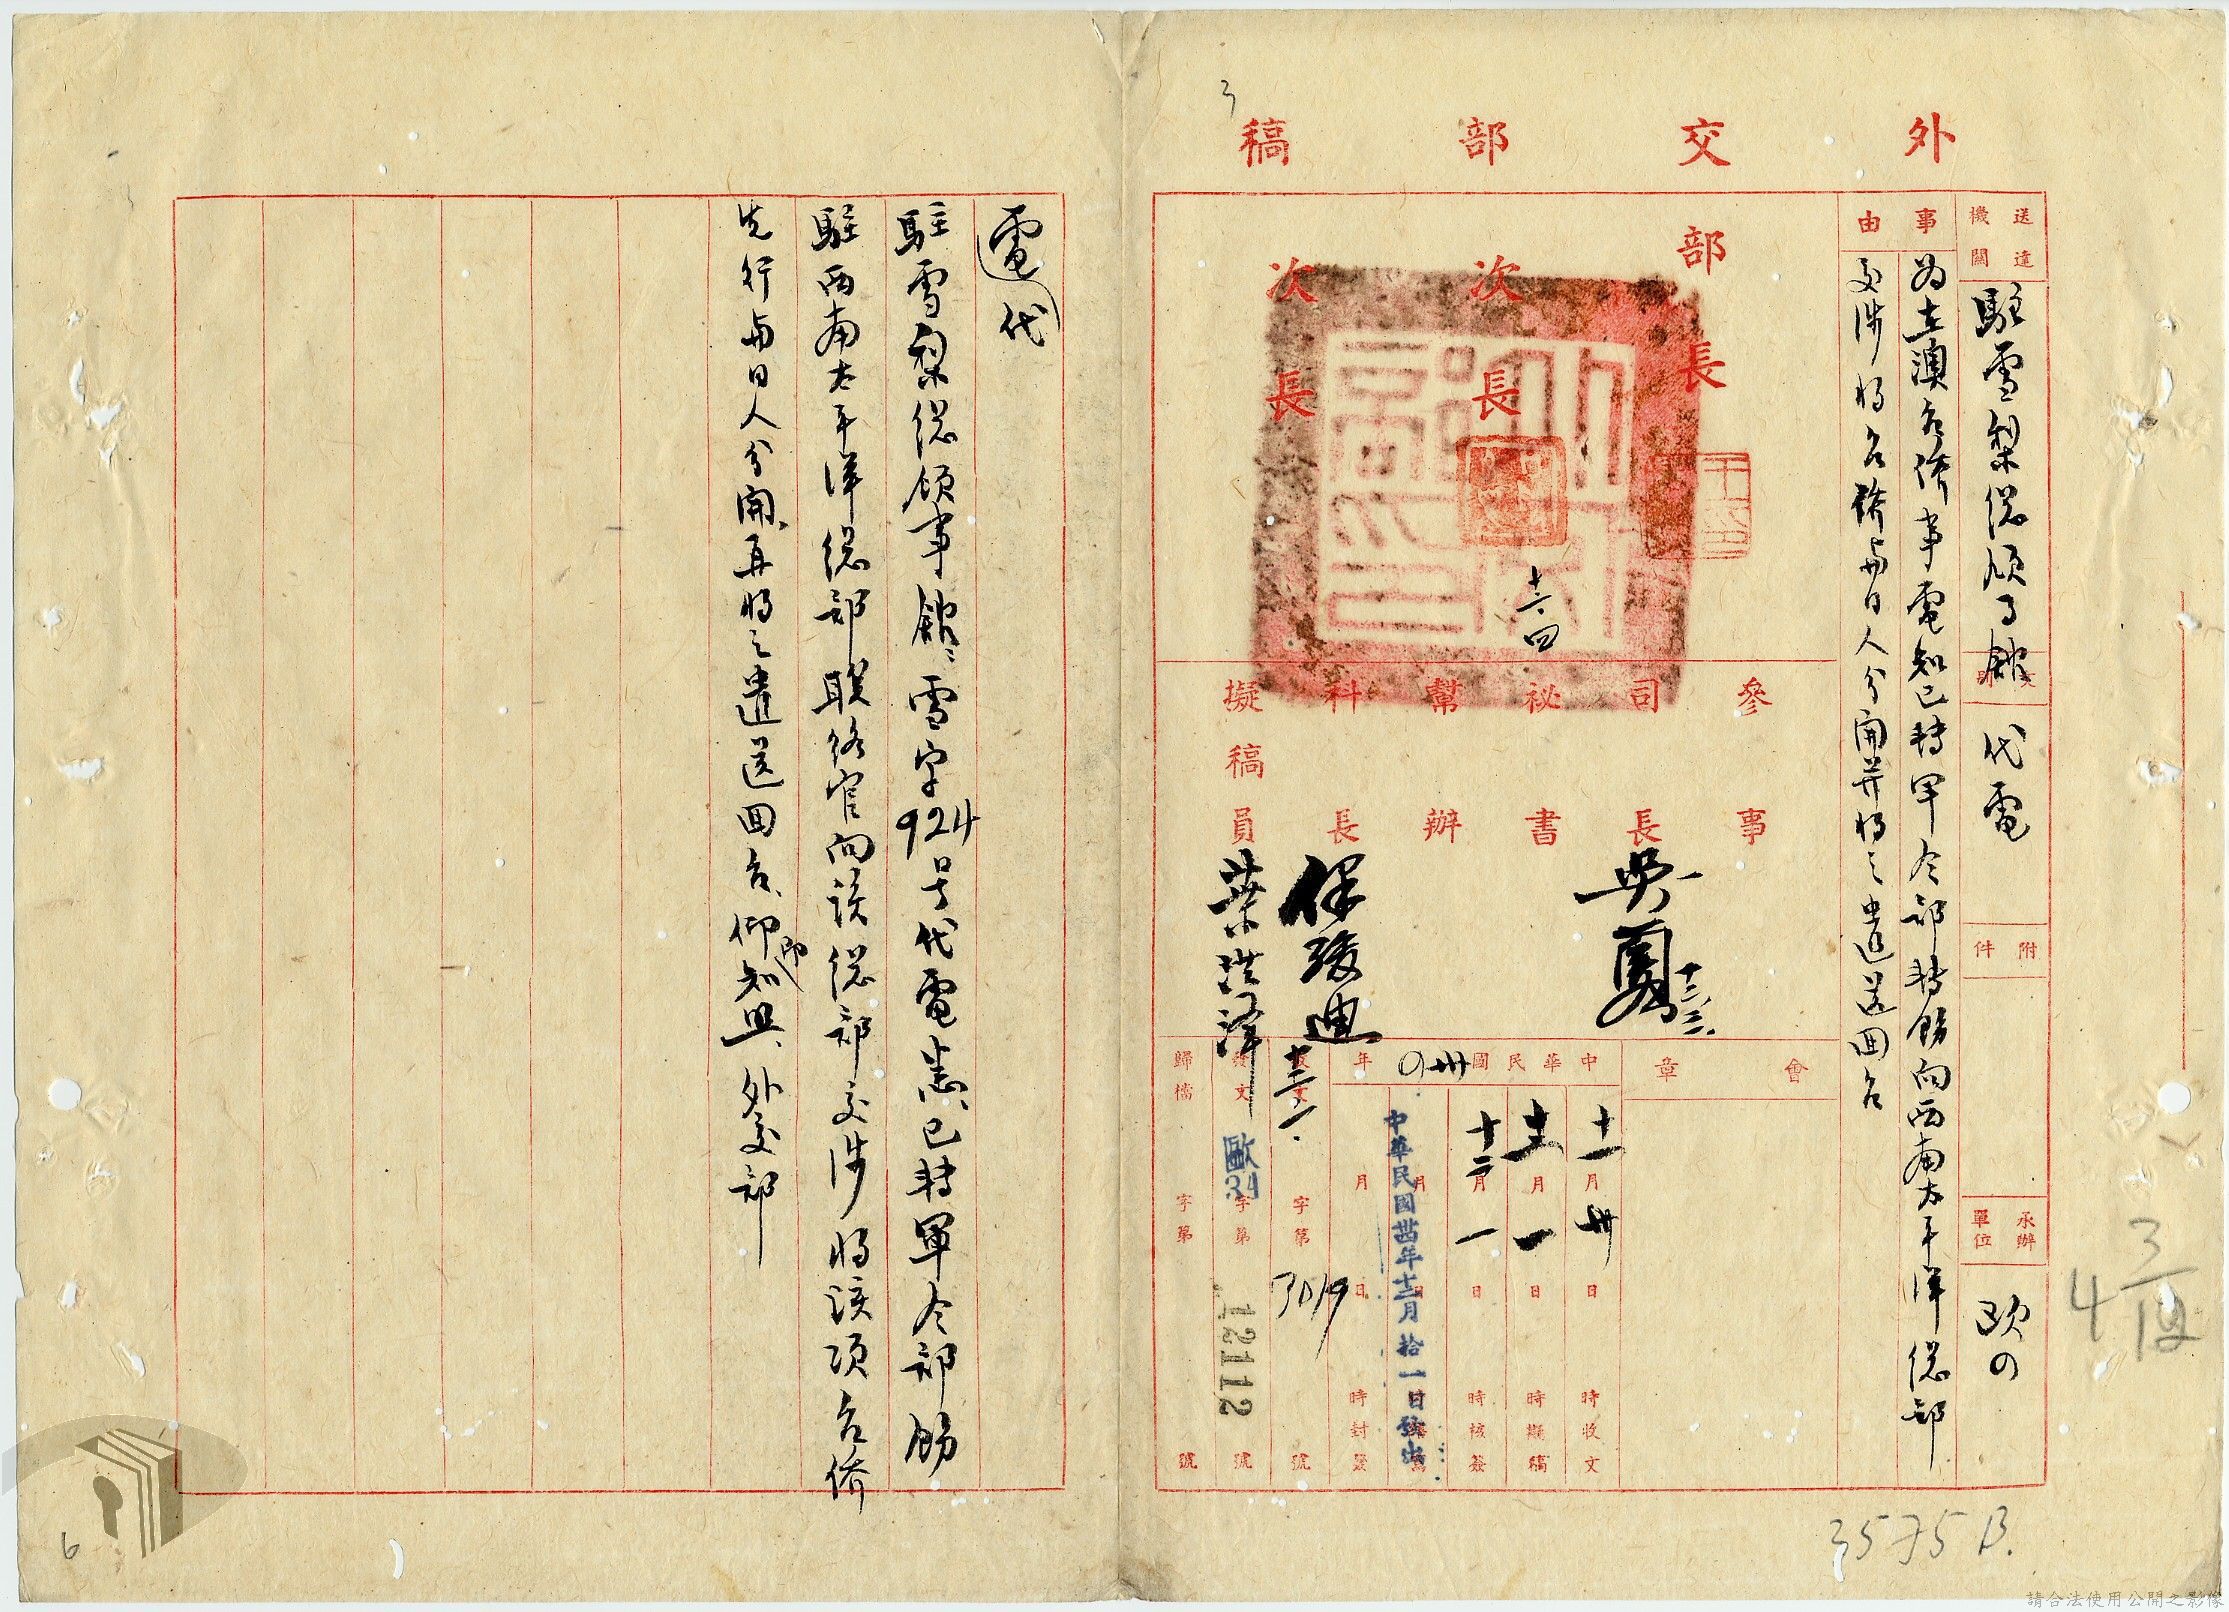 外交部稿
送達機關
駐雪梨總領事館
代電
附件
承辦單位
歐
事由
為在澳台僑事電知已轉軍令部轉飭向西南太平洋總部
交涉將台僑與日人分開并將之遣送回台
部長
次長
次長
十二、四
參事
司長
祕書
幫辦
科長
擬稿員
吳
十二、三
保駿迪
十二、一
葉洪澤
會章
中華民國卅四年
十一月卅日時收文
十二月一日時擬稿
十二月一日時核簽
中華民國卅四年十二月拾一日發出
月日時封發
收文字第3019號
發文歐34字第12112號
歸檔字第號
3575B.
3
4 3/12
代電
駐雪梨總領事館、雪字924号代電悉、已轉軍令部飭
駐西南太平洋總部联絡官向該總部交涉將該項台僑
先行與日人分開、再將之遣送回台、仰即知照、外交部
6
請合法使用公開之影像